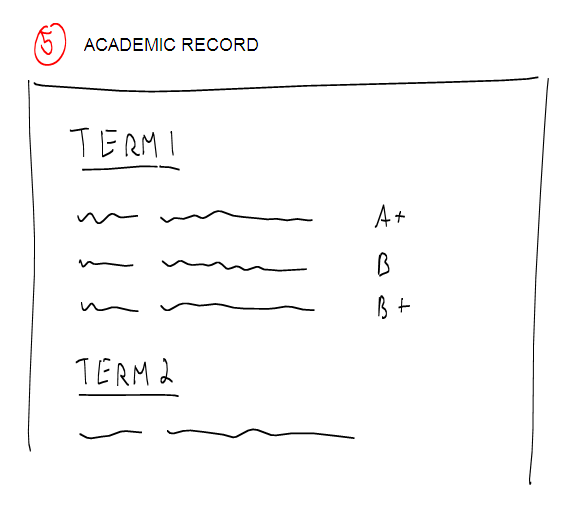 5 ACADEMIC RECORD
TERM 1
A+
B
B+
TERM 2